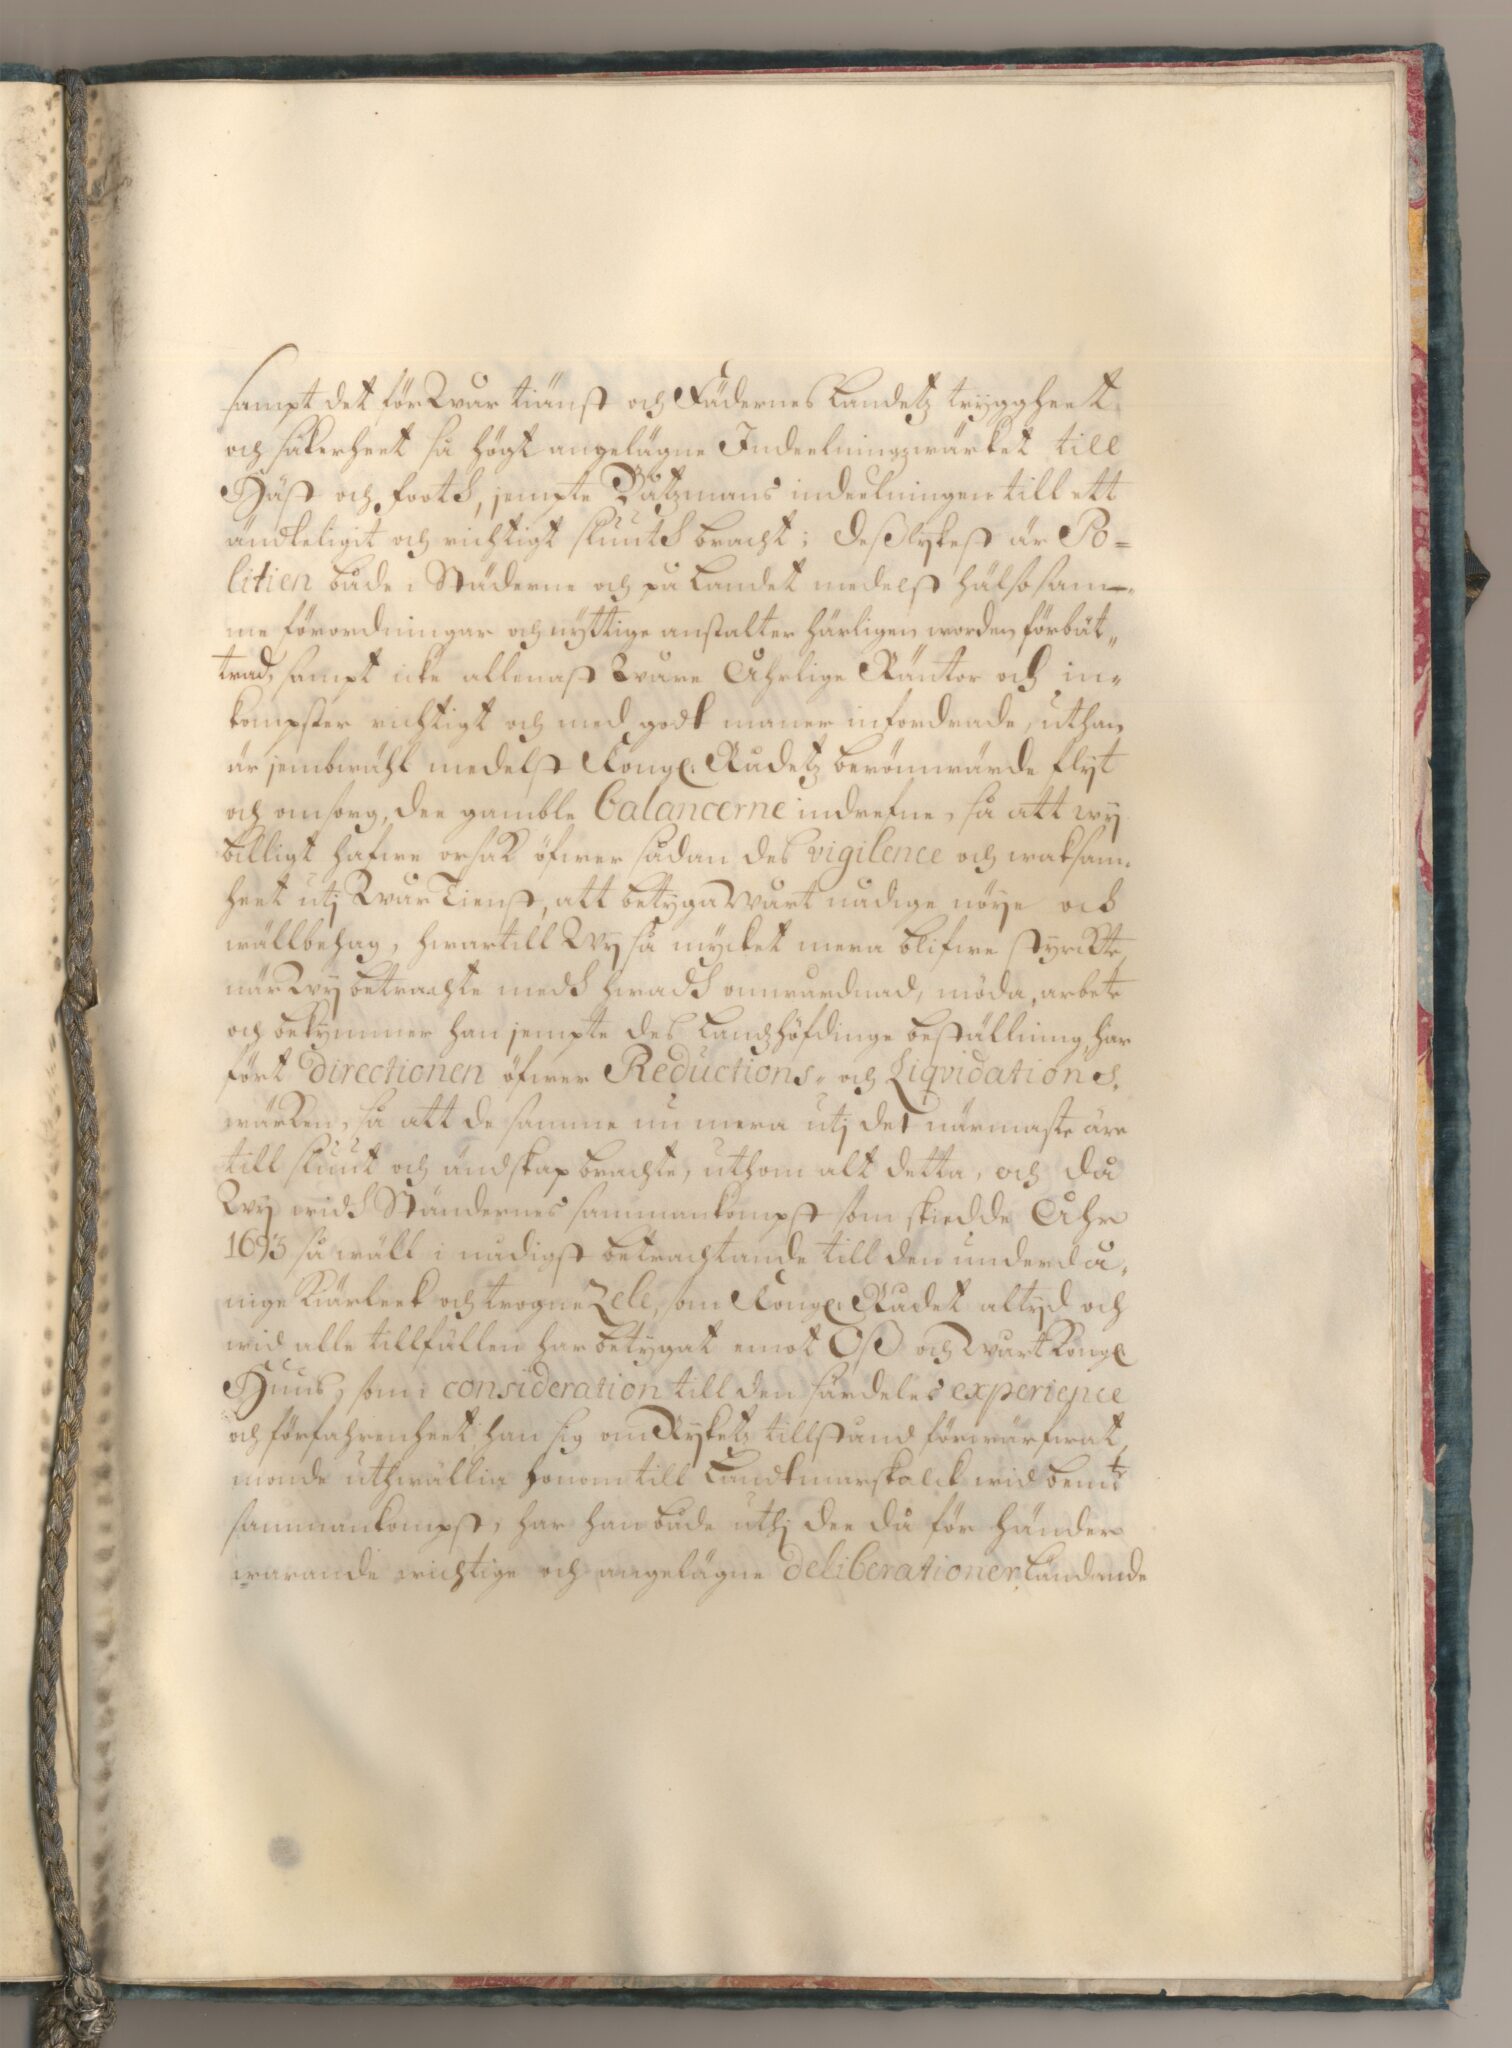 sampt det för Wår tiänst och Fädernes Landetz tryggheet
och säkerheet så högt angelägne Indeelningzwärket till
Häst och footh, jempte Båtzmans indeelningen till ett
ändteligit och richtigt sluuth bracht; deßlykest är Po=
litien både i Städerne och på Landet medelst hälsosam-
me förordningar och nyttige anstalter härligen worden förbät-
trad, sampt icke allenast Wåre Åhrlige Räntor och in-
kompster richtigt och med godt maner infordrade, uthan
är jembwähl medelst Kongl. Rådetz berömwärde flyt
och omsorg, dee gamble balancerne indrefne, så att wy
billigt hafwe orsak öfwer sådan des vigilence och waksam-
heet utj Wår Tienst, att betyga Wårt nådige nöye och
wällbehag, hwartill Wy så mycket mera blifwe styrckte,
när Wy betrachte medh hwadh omwårdnad, möda, arbete
och bekymmer han jempte des Landzhöfdinge beställning, har
fört directionen öfwer Reductions- och Liqvidations-
wärken, så att de samme nu mera utj det närmaste äre
till sluut och ändskap brachte, uthom alt detta, och då
Wy widh Ständernes sammankompst som skiedde Åhr
1693 så wäll i nådigst betrachtande till den underdå-
nige Kiärleek och trogne Zele, som Kongl. Rådet altyd och
wid alle tillfällen har betygat emot Oß och Wårt Kongl.
Huus, som i consideration till den särdeles experience
och förfahrenheet han sig om Ryketz tillstånd förwärfwat,
monde uthwällia honom till Landtmarskalck wid bemte
sammankompst, har han både uthj dee då för händer
warande wichtige och angelägne deliberationer, ländande